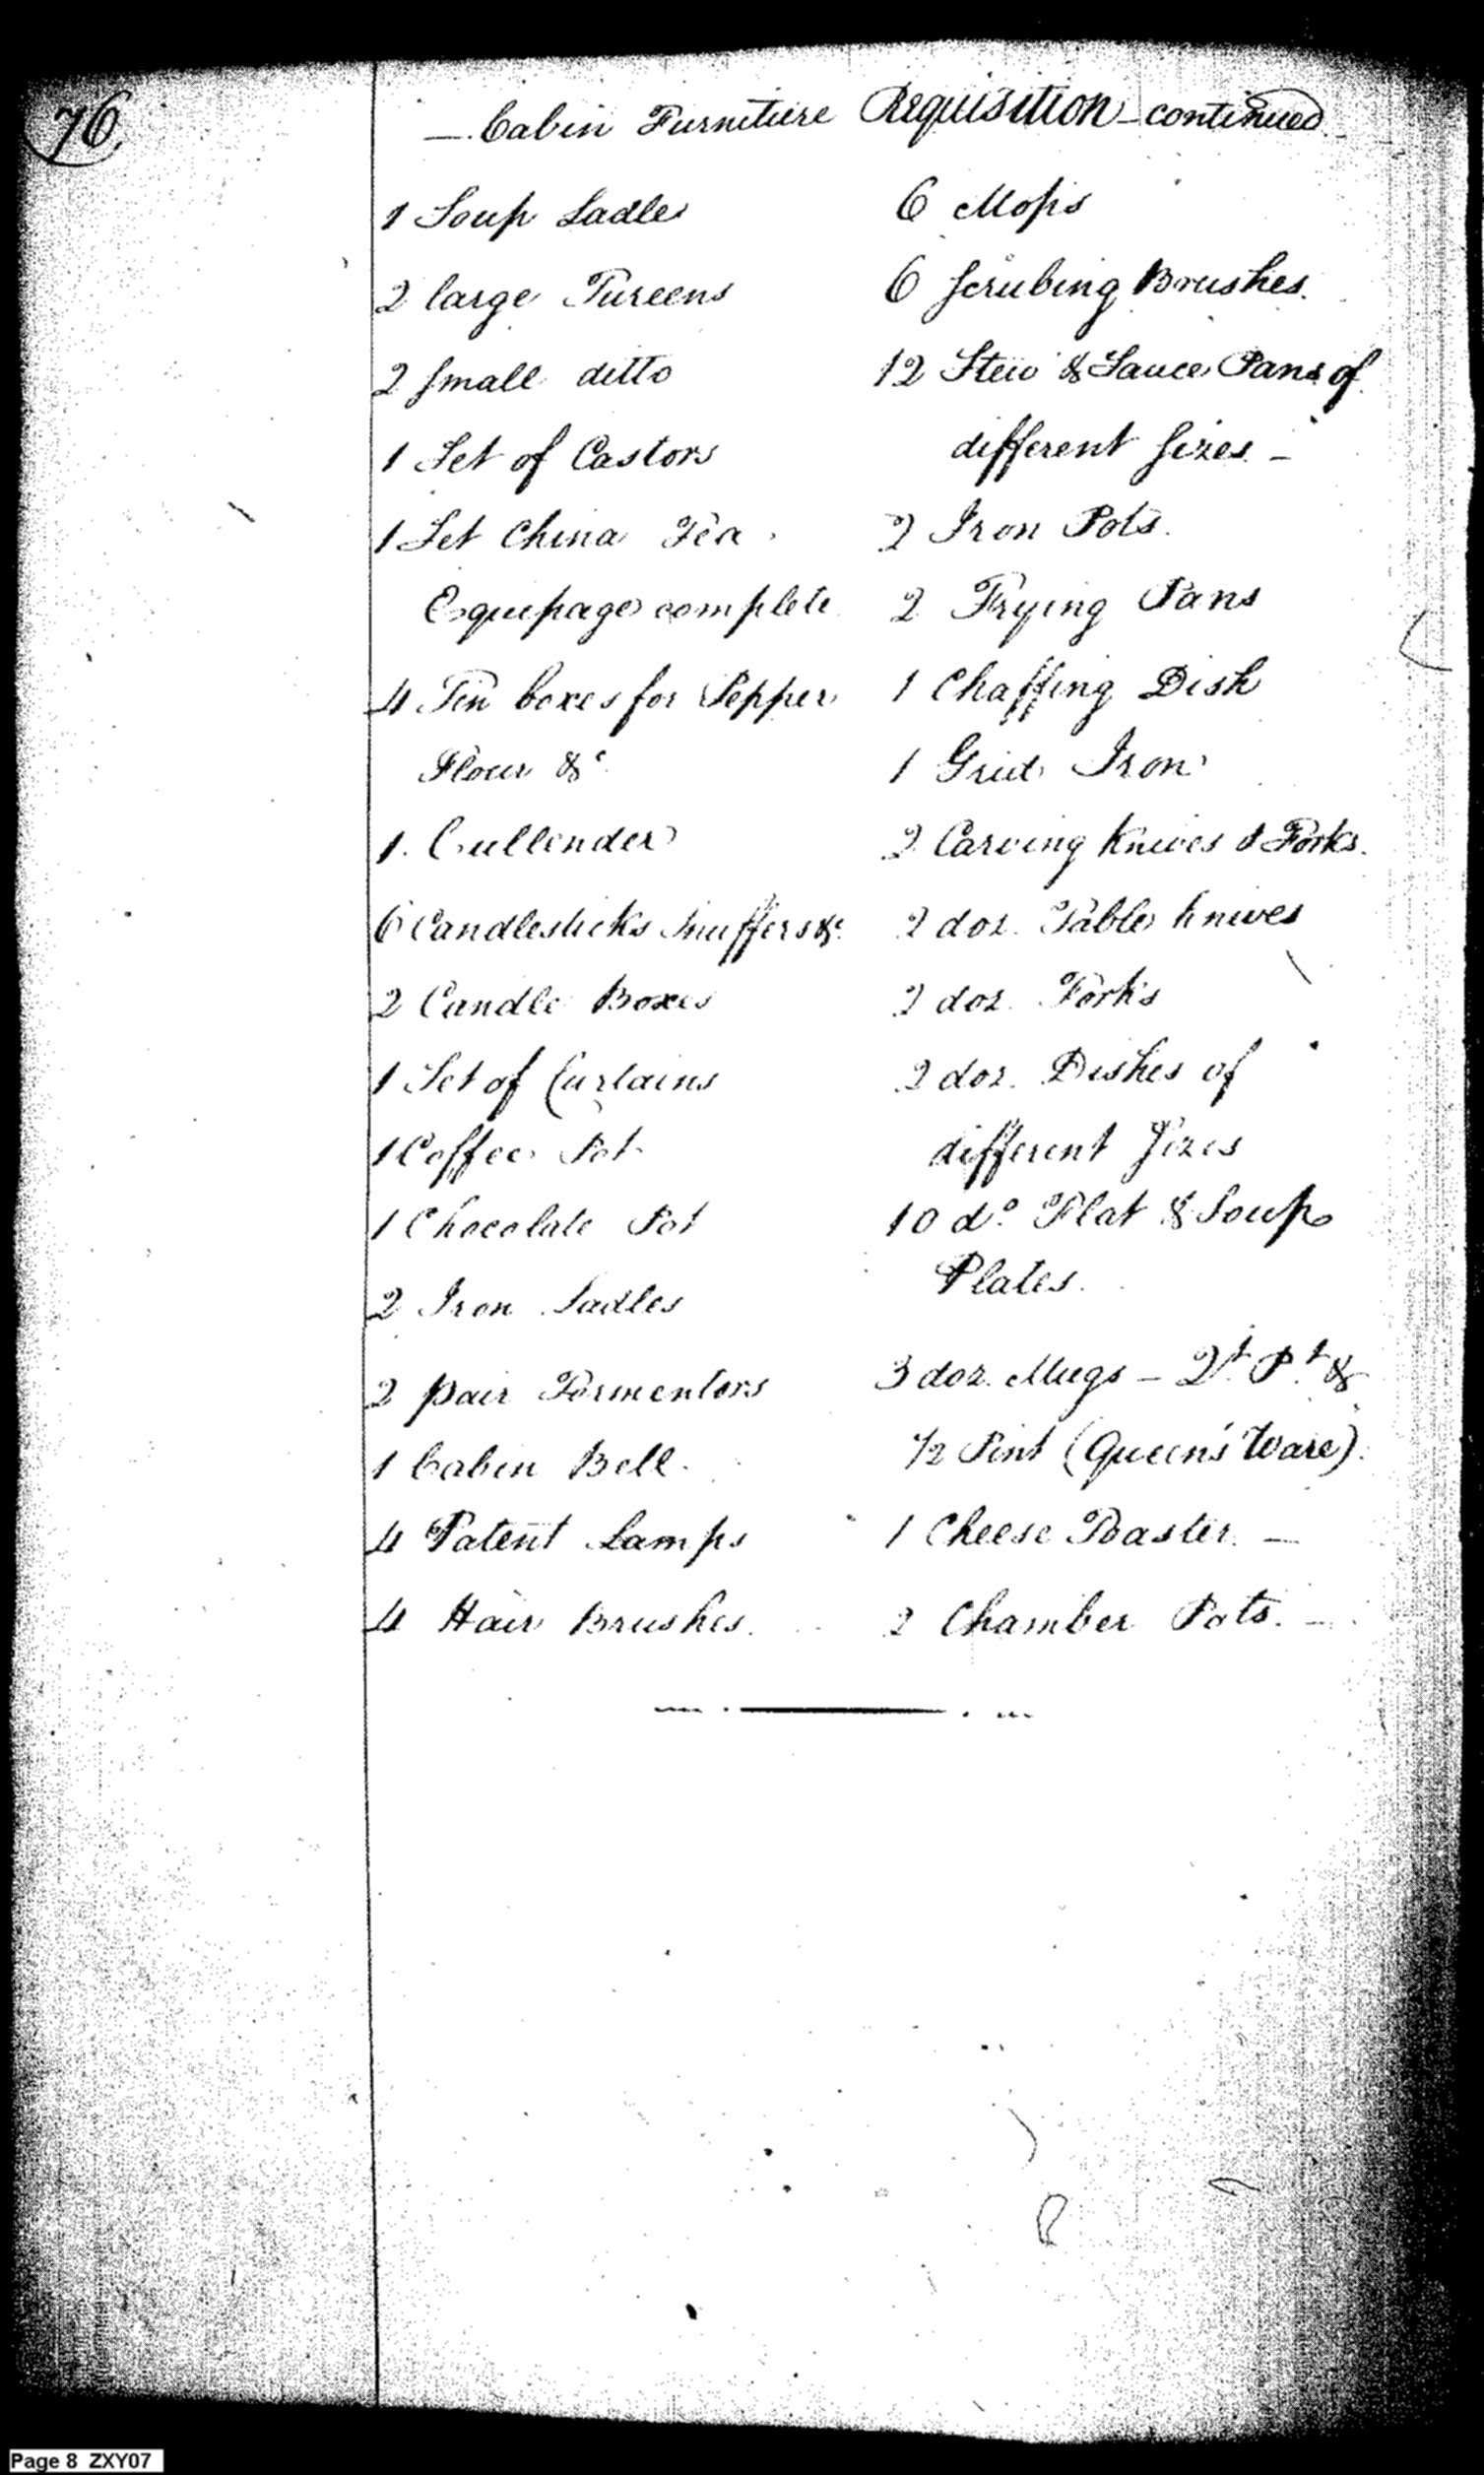 76
— Cabin Furniture Requisition — continued.
1 Soup Ladle
2 large Tureens
2 Small ditto
1 Set of Castors
1 Set China Tea
Equipage complete
4 Tin boxes for Pepper
Flour &c
1. Cullender
6 Candlesticks Snuffers &c
2 Candle Boxes
1 Set of Curtains
1 Coffee Pot
1 Chocolate Pot
2 Iron Ladles
2 pair Tormentors
1 Cabin Bell.
4 Patent Lamps
4 Hair Brushes.
6 Mops
6 Scrubing Brushes.
12 Stew & Sauce Pans of
different Sizes —
2 Iron Pots.
2 Frying Pans
1 Chaffing Dish
1 Grid Iron
2 Carving Knives & Forks.
2 doz. Table knives
2 doz. Forks
2 doz. Dishes of
different Sizes
10 do. Flat & Soup
Plates.
3 doz. Mugs — Qt. Pt. &
1/2 Pint (Queen's Ware).
1 Cheese Toaster. —
2 Chamber Pots. —
Page 8 ZXY07